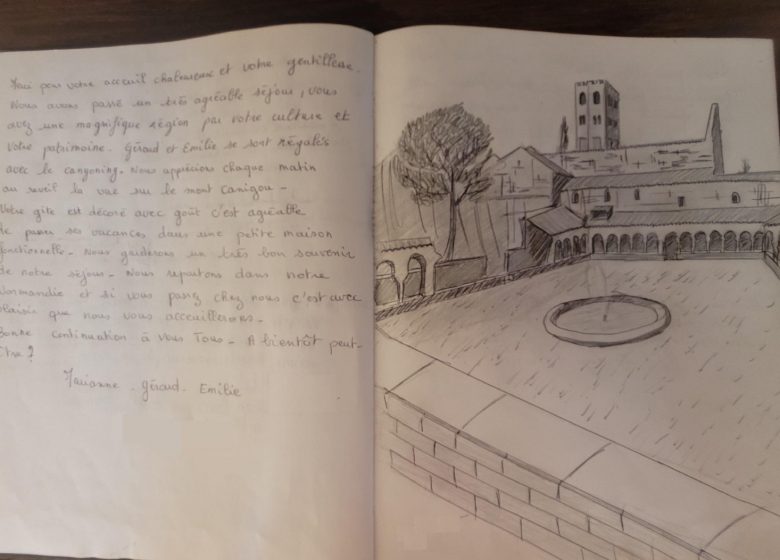 pour votre accueil chaleureux et votre gentillesse.
Nous avons passé un très agréable séjour, vous
avez une magnifique région par votre culture et
votre patrimoine. Géraud et Emilie se sont régalés
avec le canyoning. Nous apprécions chaque matin
au réveil la vue sur le mont Canigou -
Votre gîte est décoré avec goût c'est agréable
de passer ses vacances dans une petite maison
fonctionnelle - Nous garderons un très bon souvenir
de notre séjour - Nous repartons dans notre
Normandie et si vous passez chez nous c'est avec
plaisir que nous vous accueillerons -
Bonne continuation à vous Tous - A bientôt peut-
être ?
Géraud - Emilie